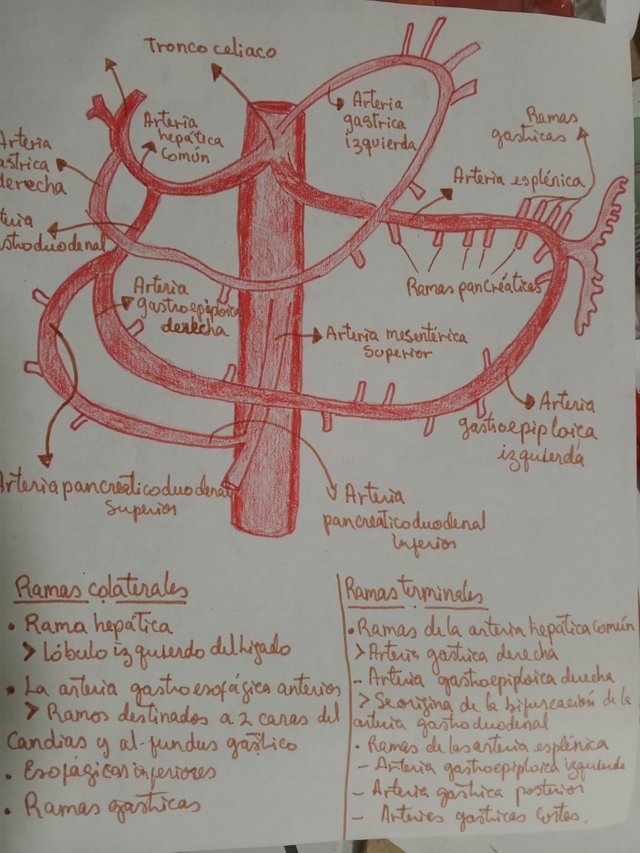 Tronco celiaco
Arteria
hepática
común
Arteria
gastrica
izquierda
Ramas
gastricas
Arteria esplénica
derecha
Ramas pancréaticas
Arteria
gastroepiploica
derecha
Arteria mesentérica
Superior
Arteria
gastroepiploica
izquierda
Arteria pancreaticoduodenal
Superior
Arteria
pancreaticoduodenal
Inferior
Ramas colaterales
• Rama hepática
> Lóbulo izquierdo del higado
• La arteria gastroesofágica anterior
> Ramos destinados a 2 caras del
Cardias y al fundus gástrico
• Esofágicas inferiores
• Ramas gastricas
Ramas terminales
• Ramas de la arteria hepática común
> Arteria gastrica derecha
- Arteria gastroepiploica derecha
> Se origina de la bifurcación de la
arteria gastroduodenal
• Ramas de las arteria esplénica
- Arteria gastroepiploica izquierda
- Arteria gastrica posterior
- Arterias gastricas Cortas.